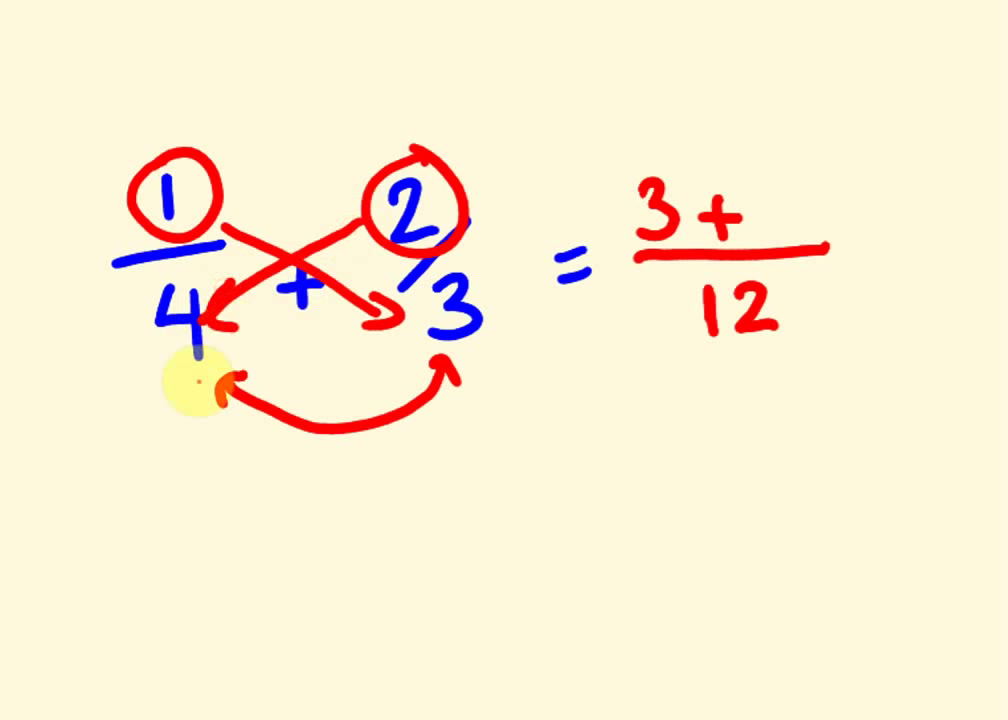 1/4 + 2/3 = 3+/12